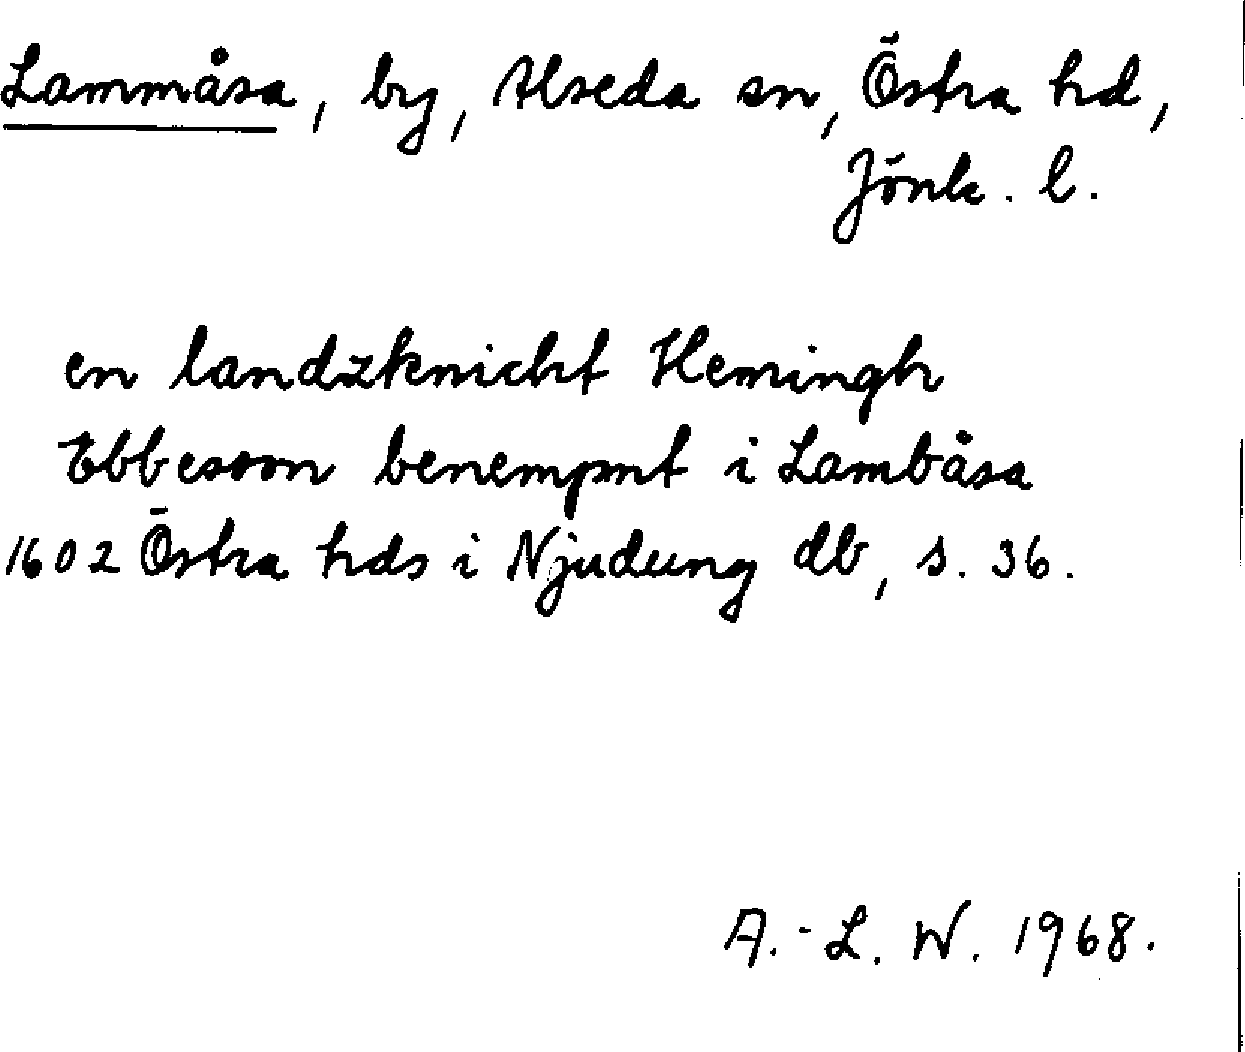 Lammåsa, by, Alseda sn, Östra hd,
Jönk. l.
en landzknicht Hemingh
Ebbesson benempnt i Lambåsa
1602 Östra hds i Njudung db, s. 36.
A.-L. W. 1968.